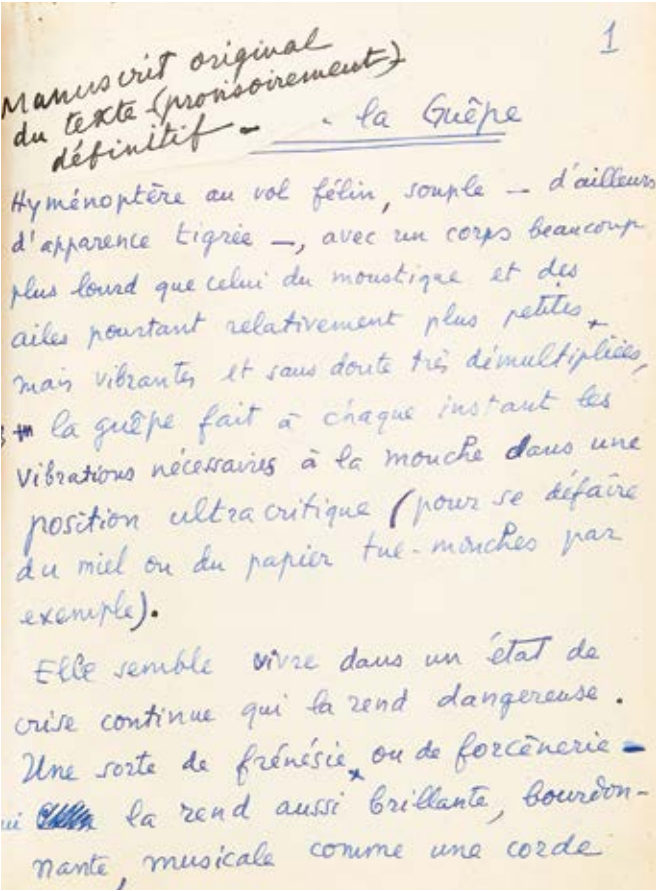 1
Manuscrit original
du texte (provisoirement)
définitif -
la Guêpe
Hyménoptère au vol félin, souple — d'ailleurs
d'apparence tigrée —, avec un corps beaucoup
plus lourd que celui du moustique et des
ailes pourtant relativement plus petites
mais vibrantes et sans doute très démultipliées,
la guêpe fait à chaque instant les
vibrations nécessaires à la mouche dans une
position ultracritique (pour se défaire
du miel ou du papier tue-mouches par
exemple).
Elle semble vivre dans un état de
crise continue qui la rend dangereuse.
Une sorte de frénésie ou de forcènerie -
ui la rend aussi brillante, bourdon-
nante, musicale comme une corde